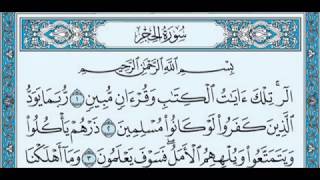 سُورَةُ الحِجْرِ
بِسْمِ اللَّهِ الرَّحْمَٰنِ الرَّحِيمِ
الٓر ۚ تِلْكَ ءَايَٰتُ ٱلْكِتَٰبِ وَقُرْءَانٍ مُّبِينٍ ١ رُّبَمَا يَوَدُّ
ٱلَّذِينَ كَفَرُوا۟ لَوْ كَانُوا۟ مُسْلِمِينَ ٢ ذَرْهُمْ يَأْكُلُوا۟
وَيَتَمَتَّعُوا۟ وَيُلْهِهِمُ ٱلْأَمَلُ ۖ فَسَوْفَ يَعْلَمُونَ ٣ وَمَآ أَهْلَكْنَا